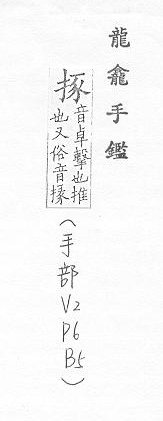 龍龕手鑑
㧻音卓擊也推
也又俗音㨿
(手部V2P6B5)